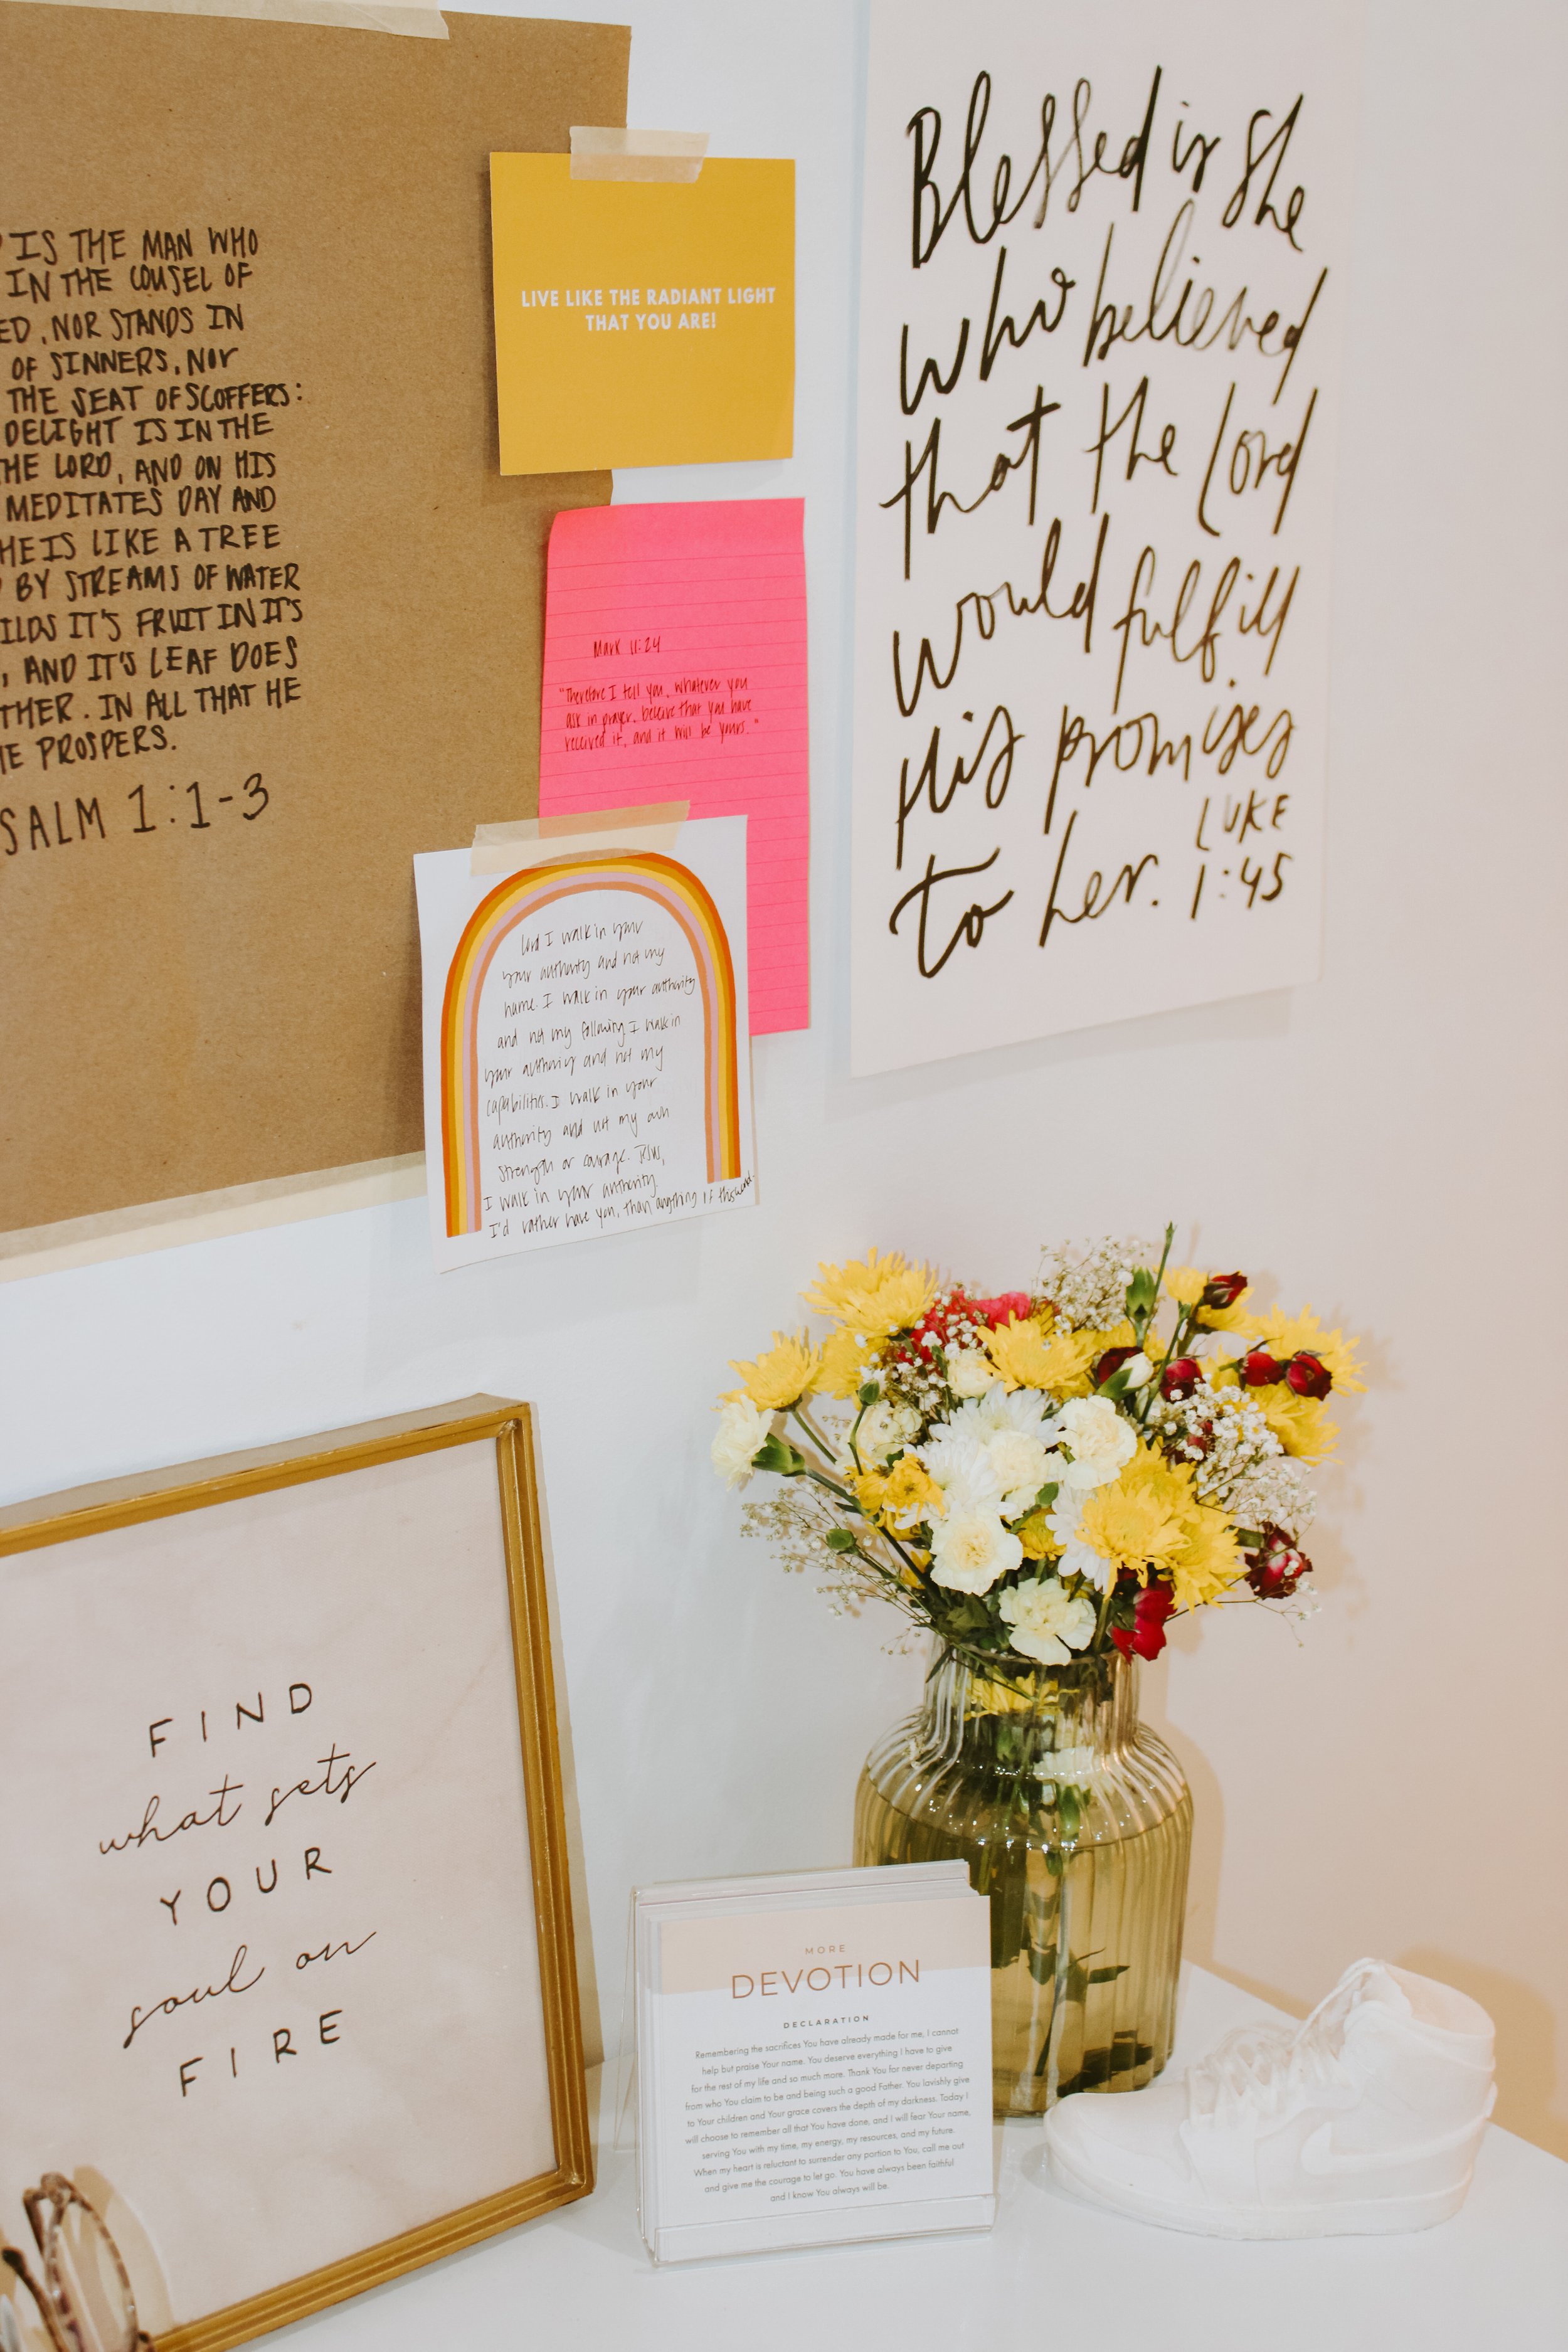 IS THE MAN WHO
IN THE COUSEL OF
ED, NOR STANDS IN
OF SINNERS, NOR
THE SEAT OF SCOFFERS:
DELIGHT IS IN THE
THE LORD, AND ON HIS
MEDITATES DAY AND
HE IS LIKE A TREE
BY STREAMS OF WATER
ILDS IT'S FRUIT IN IT'S
, AND IT'S LEAF DOES
THER. IN ALL THAT HE
HE PROSPERS.
SALM 1:1-3
LIVE LIKE THE RADIANT LIGHT
THAT YOU ARE!
Mark 11:24
"Therefore I tell you, whatever you
ask in prayer, believe that you have
received it, and it will be yours."
Lord I walk in your
your authority and not my
name. I walk in your authority
and not my following. I walk in
your authority and not my
capabilities. I walk in your
authority and not my own
strength or courage. Jesus,
I walk in your authority.
I'd rather have you, than anything of this world.
Blessed is she
who believed
that the Lord
would fulfill
His promises
to her.
LUKE
1:45
FIND
what sets
YOUR
soul on
FIRE
MORE
DEVOTION
DECLARATION
Remembering the sacrifices You have already made for me, I cannot
help but praise Your name. You deserve everything I have to give
for the rest of my life and so much more. Thank You for never departing
from who You claim to be and being such a good Father. You lavishly give
to Your children and Your grace covers the depth of my darkness. Today I
will choose to remember all that You have done, and I will fear Your name,
serving You with my time, my energy, my resources, and my future.
When my heart is reluctant to surrender any portion to You, call me out
and give me the courage to let go. You have always been faithful
and I know You always will be.